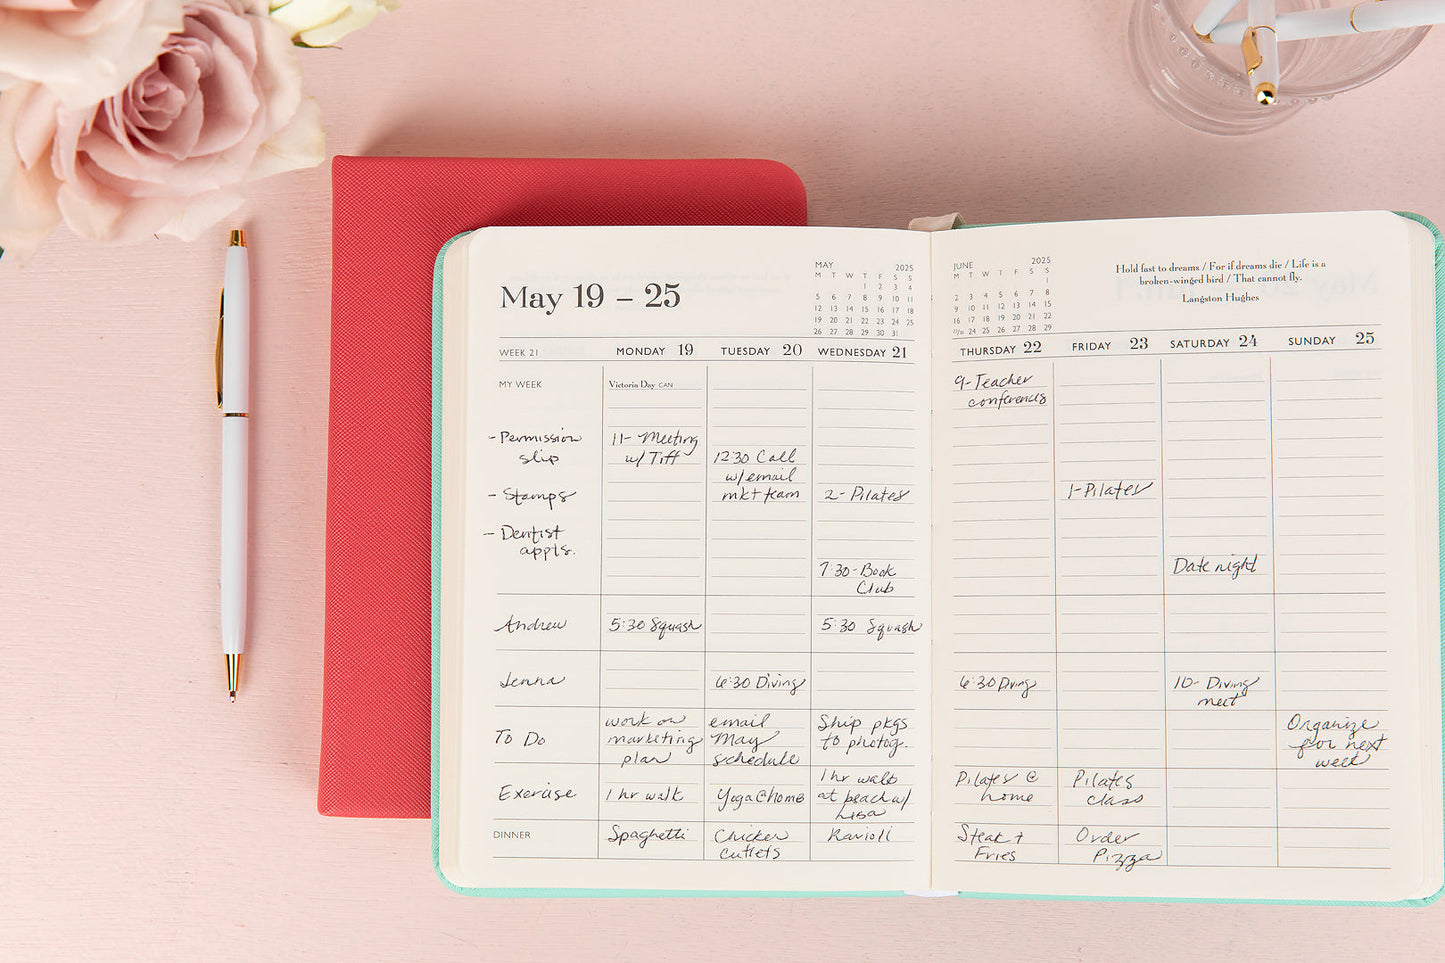 May 19 – 25
MAY 2025
M T W T F S S
1 2 3 4
5 6 7 8 9 10 11
12 13 14 15 16 17 18
19 20 21 22 23 24 25
26 27 28 29 30 31
WEEK 21
MONDAY 19
TUESDAY 20
WEDNESDAY 21
MY WEEK
Victoria Day CAN
- Permission
slip
11- Meeting
w/ Tiff
12:30 Call
w/email
mkt team
- Stamps
2- Pilates
- Dentist
appts.
7:30-Book
Club
Andrew
5:30 Squash
5:30 Squash
Jenna
6:30 Diving
To Do
work on
marketing
plan
email
May
schedule
Ship pkgs
to photog.
Exercise
1 hr walk
Yoga@home
1 hr walk
at beach w/
Lisa
DINNER
Spaghetti
Chicken
cutlets
Ravioli
JUNE 2025
M T W T F S S
1
2 3 4 5 6 7 8
9 10 11 12 13 14 15
16 17 18 19 20 21 22
23/30 24 25 26 27 28 29
Hold fast to dreams / For if dreams die / Life is a
broken-winged bird / That cannot fly.
Langston Hughes
THURSDAY 22
FRIDAY 23
SATURDAY 24
SUNDAY 25
9-Teacher
conferences
1-Pilates
Date night
6:30 Diving
10- Diving
meet
Organize
for next
week
Pilates @
home
Pilates
class
Steak +
Fries
Order
Pizza